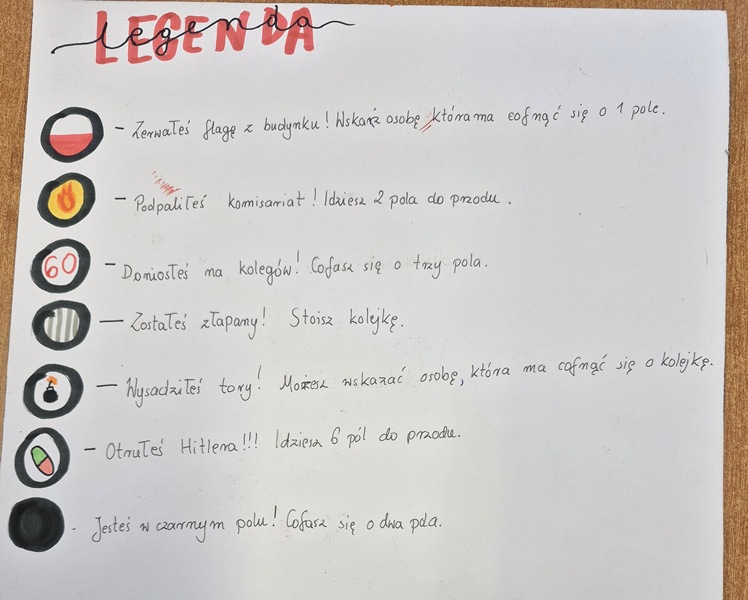 LEGENDA
legenda
- Zerwałeś flagę z budynku! Wskaż osobę, która ma cofnąć się o 1 pole.
- Podpaliłeś komisariat! Idziesz 2 pola do przodu.
60 - Doniosłeś na kolegów! Cofasz się o trzy pola.
- Zostałeś złapany! Stoisz kolejkę.
- Wysadziłeś tory! Możesz wskazać osobę, która ma cofnąć się o kolejkę.
- Otrułeś Hitlera!!! Idziesz 6 pól do przodu.
- Jesteś w czarnym polu! Cofasz się o dwa pola.